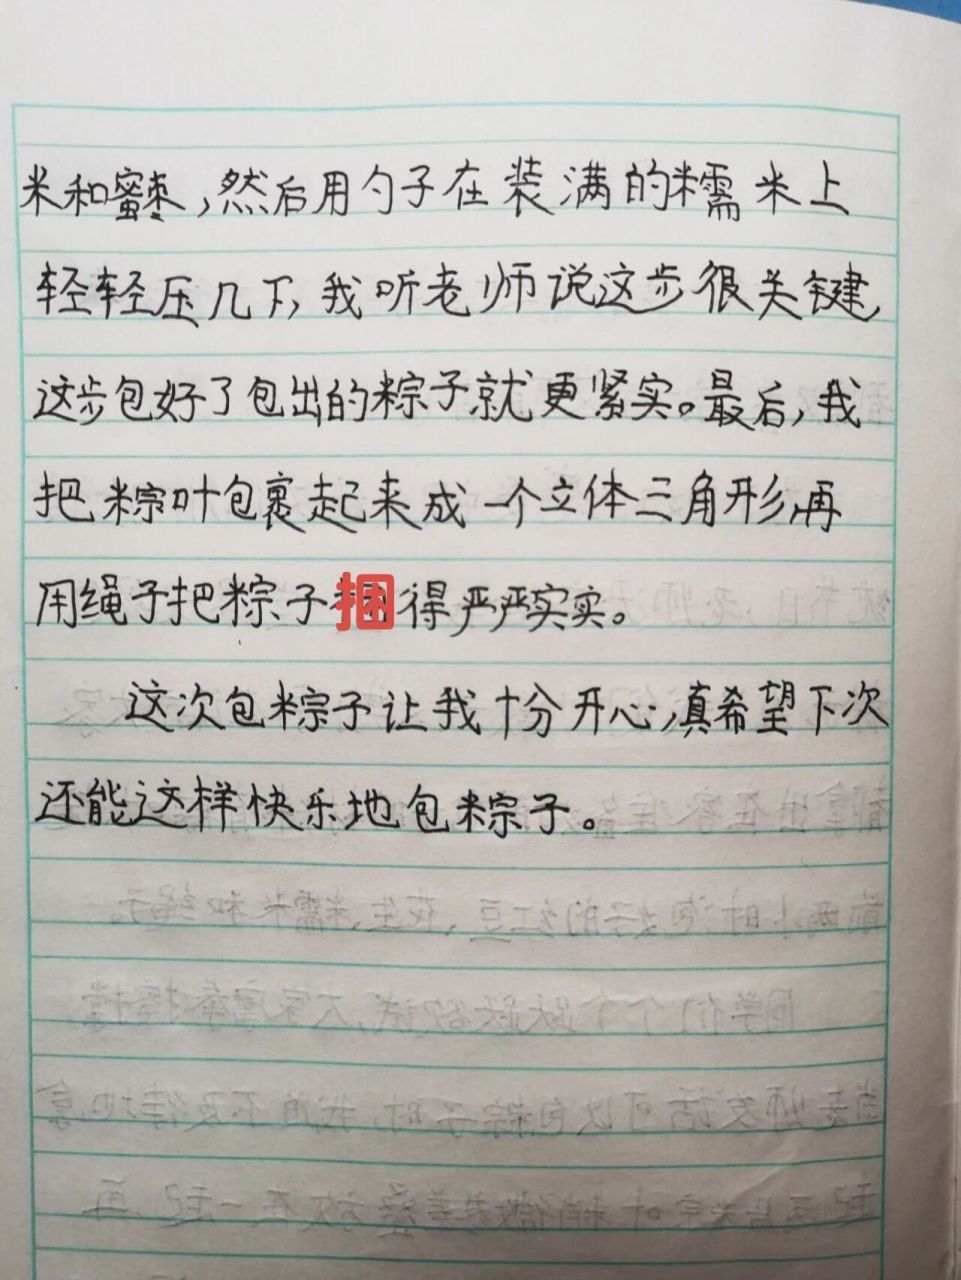 米和蜜枣,然后用勺子在装满的糯米上
轻轻压几下,我听老师说这步很关键,
这步包好了包出的粽子就更紧实。最后,我
把粽叶包裹起来成一个立体三角形,再
用绳子把粽子捆得严严实实。
这次包粽子让我十分开心,真希望下次
还能这样快乐地包粽子。